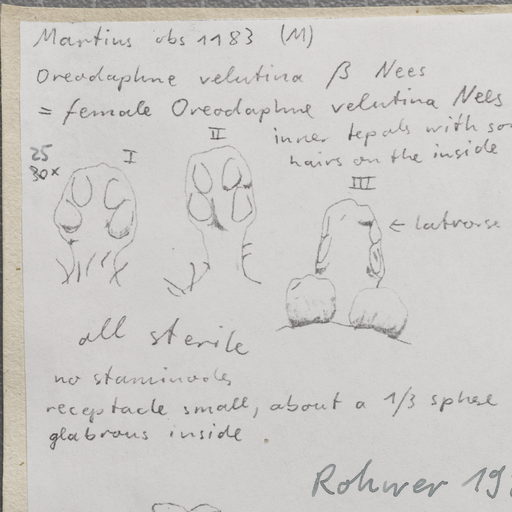 Martius obs 1183 (M)
Oreodaphne velutina β Nees
= female Oreodaphne velutina Nees
inner tepals with
hairs on the inside
25
30x
I
II
III
← latrorse
all sterile
no staminodes
receptacle small, about a 1/3 sphere
glabrous inside.
Rohwer